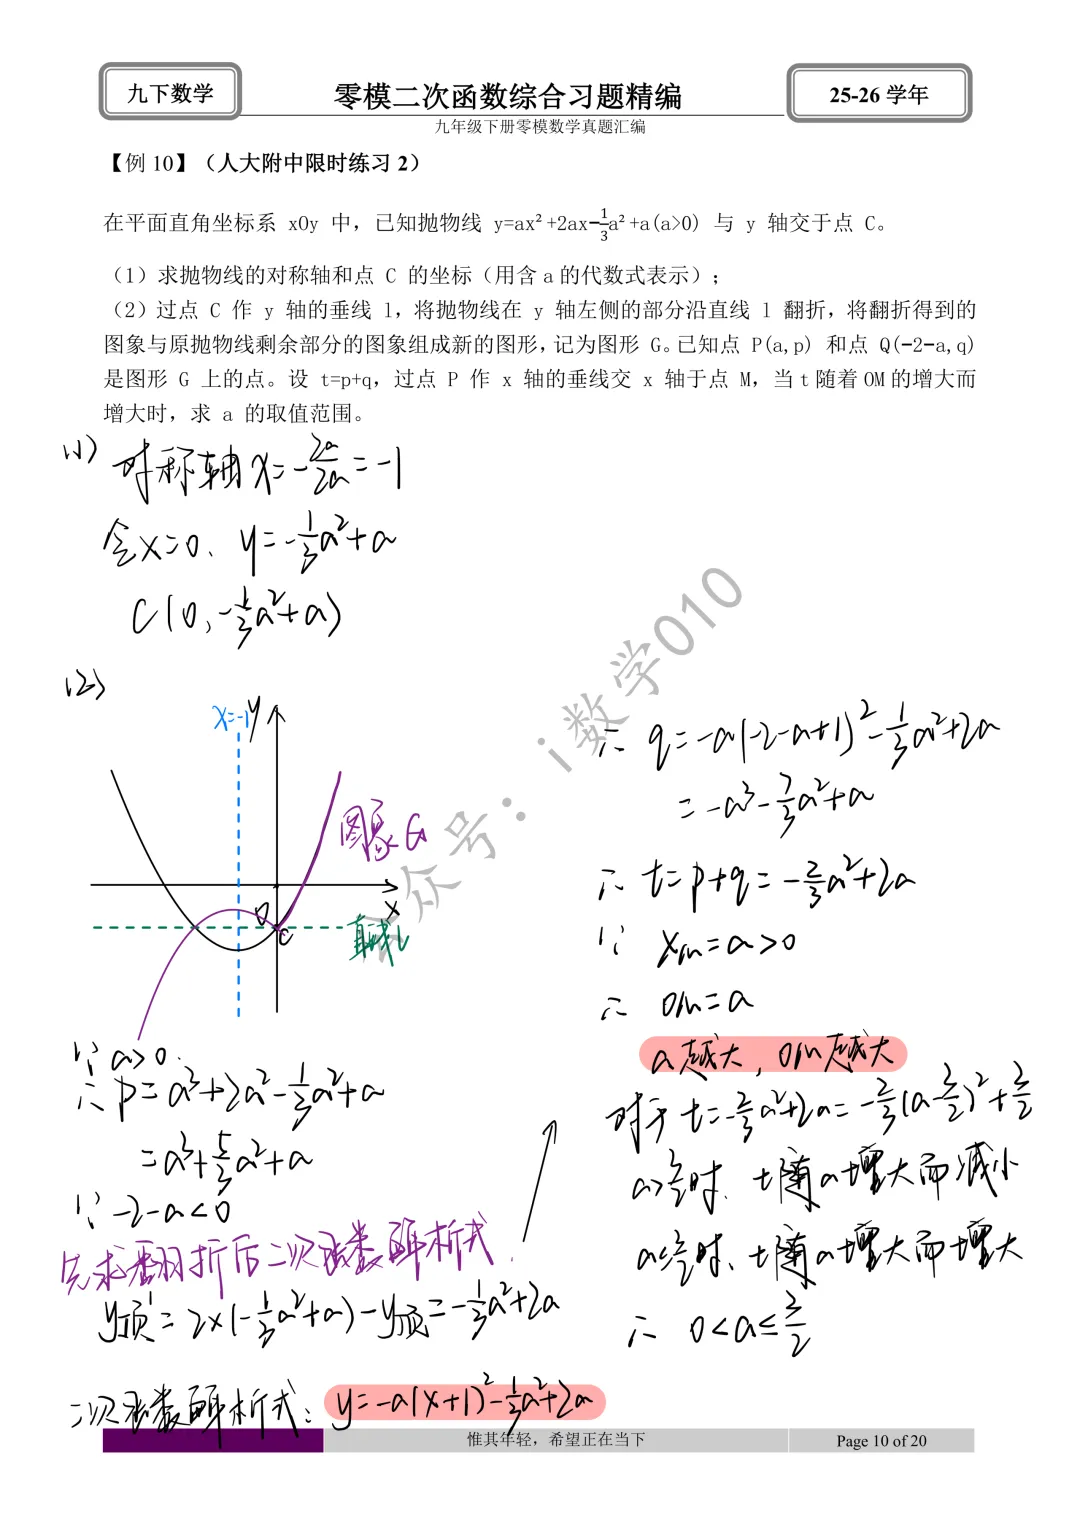 九下数学
零模二次函数综合习题精编
25-26 学年
九年级下册零模数学真题汇编
【例 10】（人大附中限时练习 2）
在平面直角坐标系 xOy 中，已知抛物线 y=ax²+2ax−1/3a²+a(a>0) 与 y 轴交于点 C。
（1）求抛物线的对称轴和点 C 的坐标（用含 a 的代数式表示）；
（2）过点 C 作 y 轴的垂线 l，将抛物线在 y 轴左侧的部分沿直线 l 翻折，将翻折得到的
图象与原抛物线剩余部分的图象组成新的图形，记为图形 G。已知点 P(a,p) 和点 Q(−2−a,q)
是图形 G 上的点。设 t=p+q，过点 P 作 x 轴的垂线交 x 轴于点 M，当 t 随着 OM 的增大而
增大时，求 a 的取值范围。
(1) 对称轴 x=-2a/2a=-1
令x=0. y=-1/3a²+a
C(0,-1/3a²+a)
(2)
x=-1
y
图象G
O
x
C
直线l
∵ a>0.
∴ p=a³+2a²-1/3a²+a
=a³+5/3a²+a
∵ -2-a<0
先求翻折后二次函数解析式.
y顶'=2×(-1/3a²+a)-y顶=-1/3a²+2a
二次函数解析式: y=-a(x+1)²-1/3a²+2a
∴ q=-a(-2-a+1)²-1/3a²+2a
=-a³-7/3a²+a
∴ t=p+q=-2/3a²+2a
∵ xm=a>0
∴ OM=a
a越大, OM越大
对于 t=-2/3a²+2a=-2/3(a-3/2)²+3/2
a>3/2时. t随a增大而减小
a≤3/2时. t随a增大而增大
∴ 0<a≤3/2
公众号：i数学010
惟其年轻，希望正在当下
Page 10 of 20